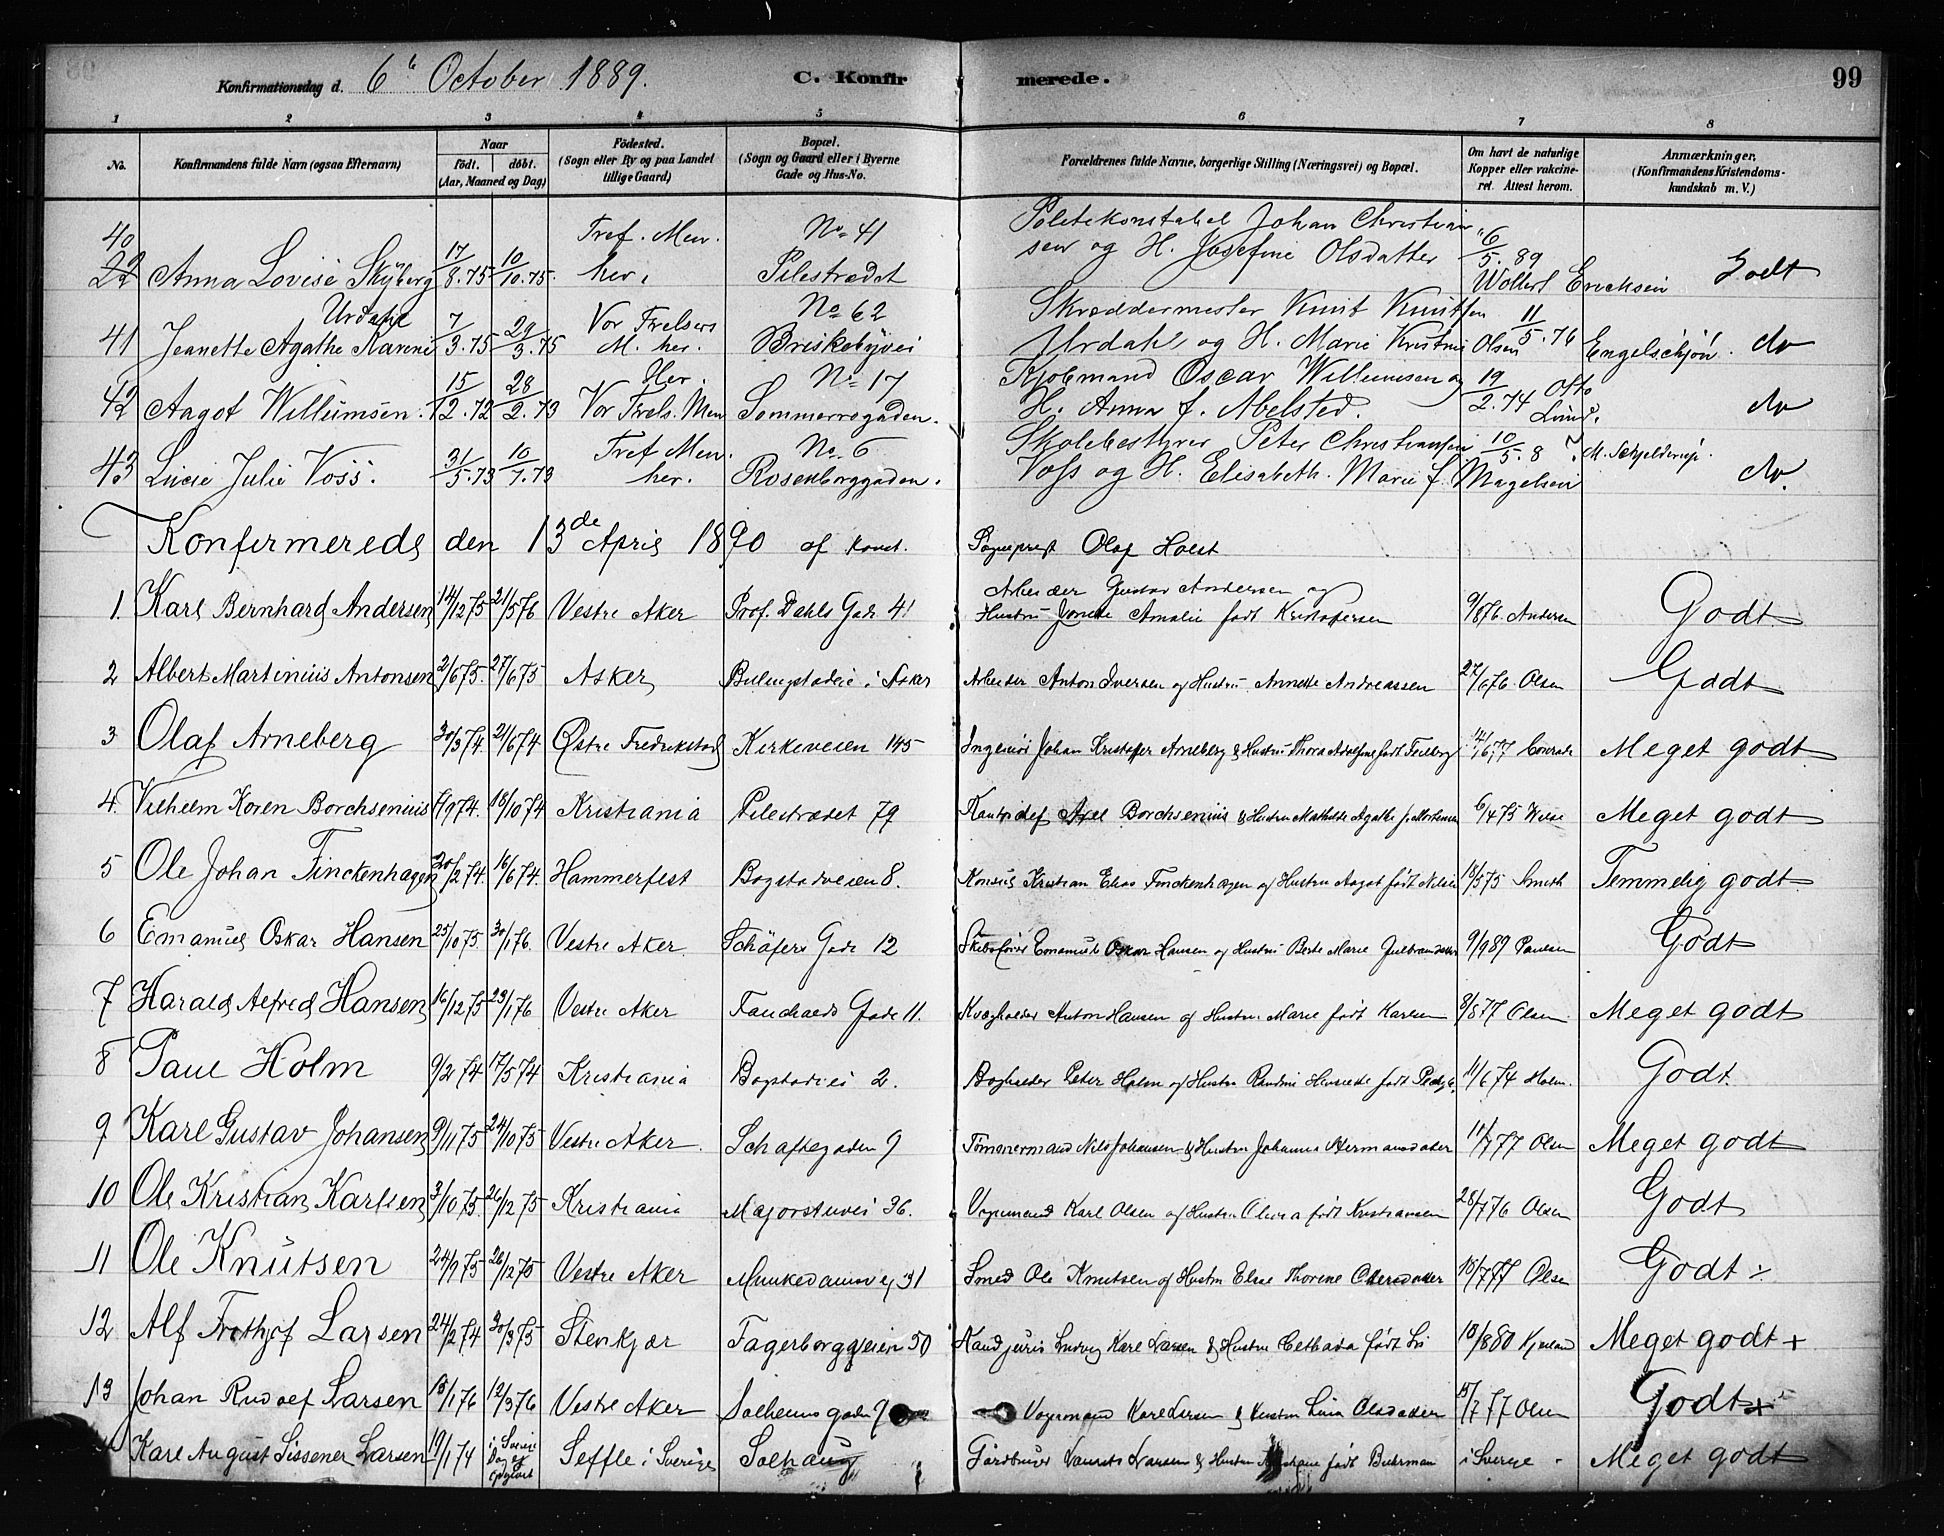 Konfirmationsdag d. 6te October 1889.
C. Konfirmerede.
99
1 2 3 4 5 6 7 8
No.
Konfirmandens fulde Navn (ogsaa Efternavn)
Naar født. døbt. (Aar, Maaned og Dag)
Fødested. (Sogn eller By og paa Landet tillige Gaard)
Bopæl. (Sogn og Gaard eller i Byerne Gade og Hus-No.
Forældrenes fulde Navne, borgerlige Stilling (Næringsvei) og Bopæl.
Om havt de naturlige Kopper eller vakcineret. Attest herom.
Anmærkninger. (Konfirmandens Kristendomskundskab m. V.)
40 Anna Lovise Skyberg 17/8.75 10/10.75. Tref. Menher. No 41 Pilestrædet Politikonstabel Johan Christiansen og H. Josefine Olsdatter 6/5.89 Wollert Erichsen Godt
41 Jeanette Agathe Karine Urdahl 7/3.75 29/3.75 Vor Frelsers M. her. No 62 Briskebyvei Skræddermester Knut Knutsen Urdahl og H. Marie Kristine Olsen 11/5.76 Engelschjøn. do
42 Aagot Willumsen. 15/12.72 28/2.73 Vor Frels. Men her. No 17 Sommerrogaden. Kjøbmand Oscar Willumsen og H. Anna f. Abelsted. 19/2.74 Otto Lund. do
43 Lucie Julie Voss. 31/5.73 10/7.73 Tref Men. her. No. 6 Rosenborggaden. Skolebestyrer Peter Christiansen Voss og H. Elisabeth Marie f. Magelsen 10/5.8 M. do.
Konfirmerede den 13de April 1890 af const. Sogneprest Olaf Holst
1. Karl Bernhard Andersen 14/1275 21/576 Vestre Aker Prof. Dahls Gade 41 Arbeider Gustav Andersen og Hustru Amalie født Kristofersen 9/876. Andersen Godt
2 Albert Martinius Antonsen 2/675. 27/675 Asker i Asker Arbeider Anton Iversen og Hustru Annette Andreassen 27/676 Olsen Godt
3 Olaf Arneberg 30/374. 21/674 Østre Fredrikstad Kirkeveien 145 Ingeniør Johan Kristofer Arneberg & Hustru Thora født 14/677 Conradi Meget godt
4. Vilhelm Koren Borchsenius 7/974. 18/1074 Kristiania Pilestrædet 79 Axel Borchsenius & Hustru Mathilde Agathe f. Mortensen 6/475 Meget godt
5 Ole Johan Finckenhagen 20/274. 16/674. Hammerfest Bogstadveien 8. Konsul Kristian Elias Finckenhagen og Hustru Aagot født Nilsen 18/575 Smith Temmelig godt
6 Emanuel Oskar Hansen 25/1075. 30/176. Vestre Aker Schäfers Gade 12 Skibsfører Emanuel Oskar Hansen og Hustru Berte Marie Gulbrandsdatter 9/989 Paulsen Godt
7 Harald Alfred Hansen 16/1275 23/176 Vestre Aker Fauchalds Gade 11. Kvægholder Anton Hansen og Hustru Marie født Karlsen 8/877 Olsen Meget godt
8 Paul Holm 9/274 17/574 Kristiania Bogstadvei 2. Bogholder Peter Holm og Hustru Henriette født 11/674 Holm. Godt.
9 Karl Gustav Johansen 9/1175 24/1075 Vestre Aker. Schaftegaden 9 Tømmermand Nils Johansen & Hustru Johanne Hermansdatter 11/777 Olsen Meget godt
10 Ole Kristian Karlsen 3/1075. 26/1275 Kristiania Majorstuvei 36. Vognmand Karl Olsen og Hustru Olina født Kristiansen 28/776 Olsen Godt
11 Ole Knutsen 24/975 26/1275 Vestre Aker Munkedamsvej 31 Smed Ole Knutsen og Hustru Else Thorine 10/777 Olsen Godt ÷
12 Alf Frithjof Larsen 24/274 30/375 Stenkjær Fagerborggveien 50 Kand juris Ludvig Karl Larsen & Hustru født Lie 18/880 Meget godt +
13 Johan Rudolf Larsen 15/176 12/376 Vestre Aker Solheimsgaden 9 Vognmand Karl Larsen & Hustru Lina Olsdatter 15/777 Olsen Godt +
Karl August Sissener Larsen 19/174 Seffle i Sverige Solhaug Gårdbruger Laurits Larsen & Hustru født Buhrman i Sverge Meget godt